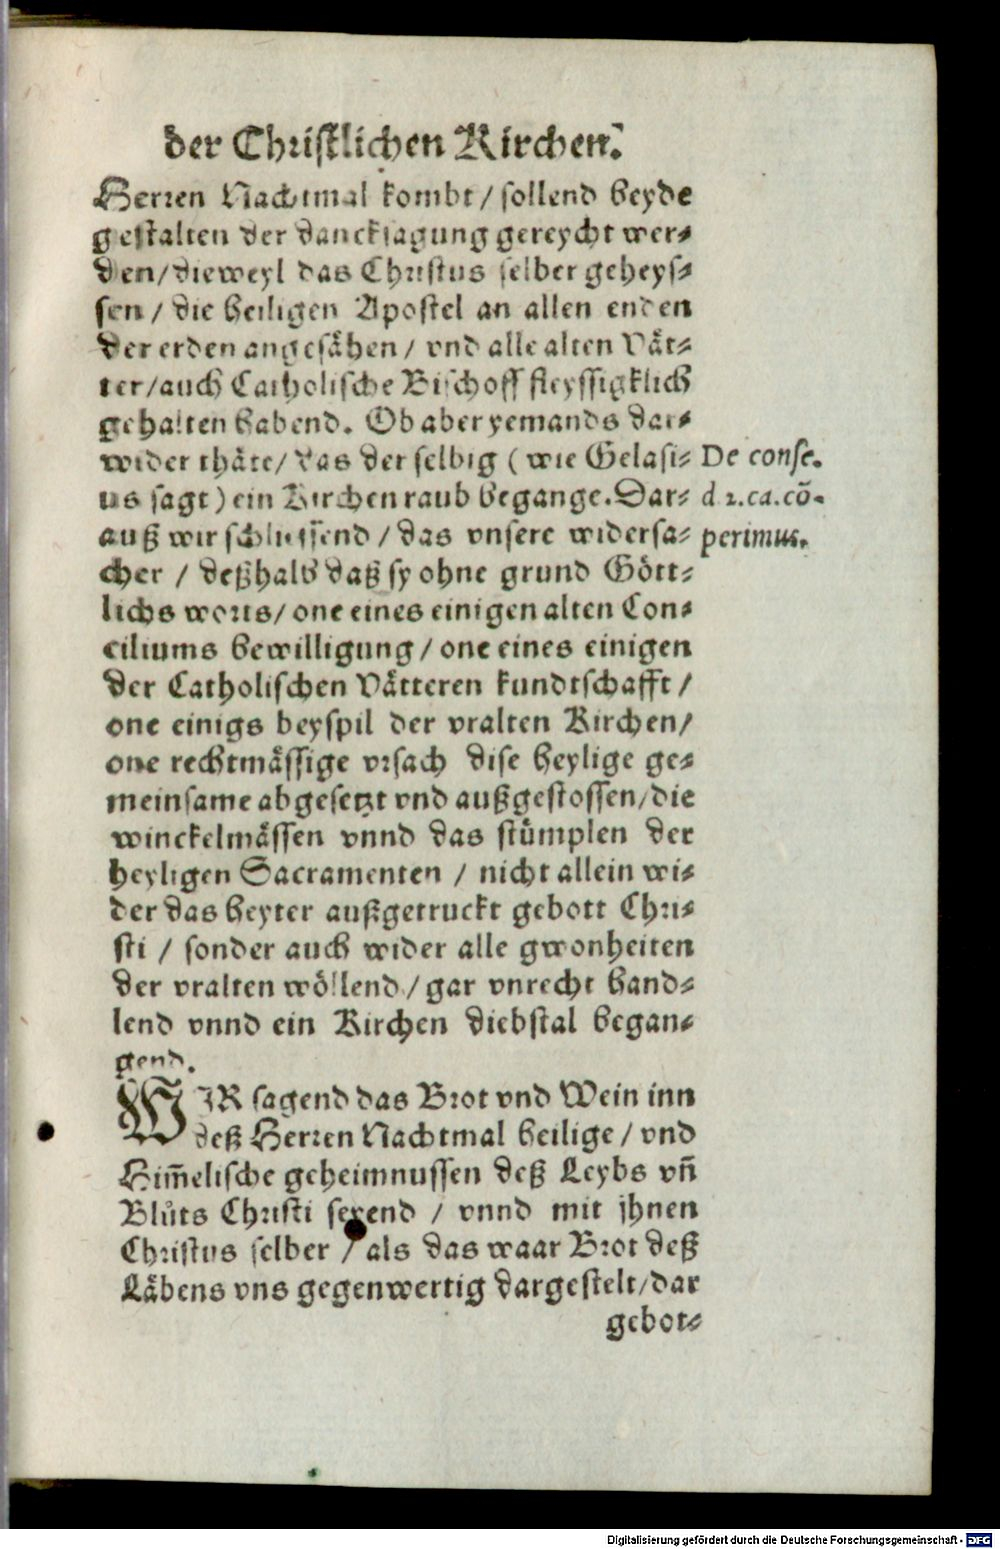 der Christlichen Kirchen.
Herren Nachtmal kombt / sollend beyde
gestalten der dancksagung gereycht wer⸗
den / dieweyl das Christus selber geheys⸗
sen / die heiligen Apostel an allen enden
der erden angesähen / vnd alle alten Vät⸗
ter / auch Catholische Bischoff fleyssigklich
gehalten habend. Ob aber yemands dar⸗
wider thäte / das der selbig ( wie Gelasi⸗ De conse.
us sagt ) ein Kirchen raub begange. Dar⸗ d 2. ca. cō⸗
auß wir schliessend / das vnsere widersa⸗ perimus.
cher / deßhalb daß sy ohne grund Gött⸗
lichs worts / one eines einigen alten Con⸗
ciliums bewilligung / one eines einigen
der Catholischen Vätteren kundtschafft /
one einigs beyspil der vralten Kirchen /
one rechtmässige vrsach dise heylige ge⸗
meinsame abgesetzt vnd außgestossen / die
winckelmässen vnnd das stümplen der
heyligen Sacramenten / nicht allein wi⸗
der das heyter außgetruckt gebott Chri⸗
sti / sonder auch wider alle gwonheiten
der vralten wöllend / gar vnrecht hand⸗
lend vnnd ein Kirchen diebstal began⸗
gend.
WIR sagend das Brot vnd Wein inn
deß Herren Nachtmal heilige / vnd
Him̄elische geheimnussen deß Leybs vn̄
Blůts Christi seyend / vnnd mit jhnen
Christus selber / als das waar Brot deß
Läbens vns gegenwertig dargestelt / dar
gebot⸗
Digitalisierung gefördert durch die Deutsche Forschungsgemeinschaft - DFG